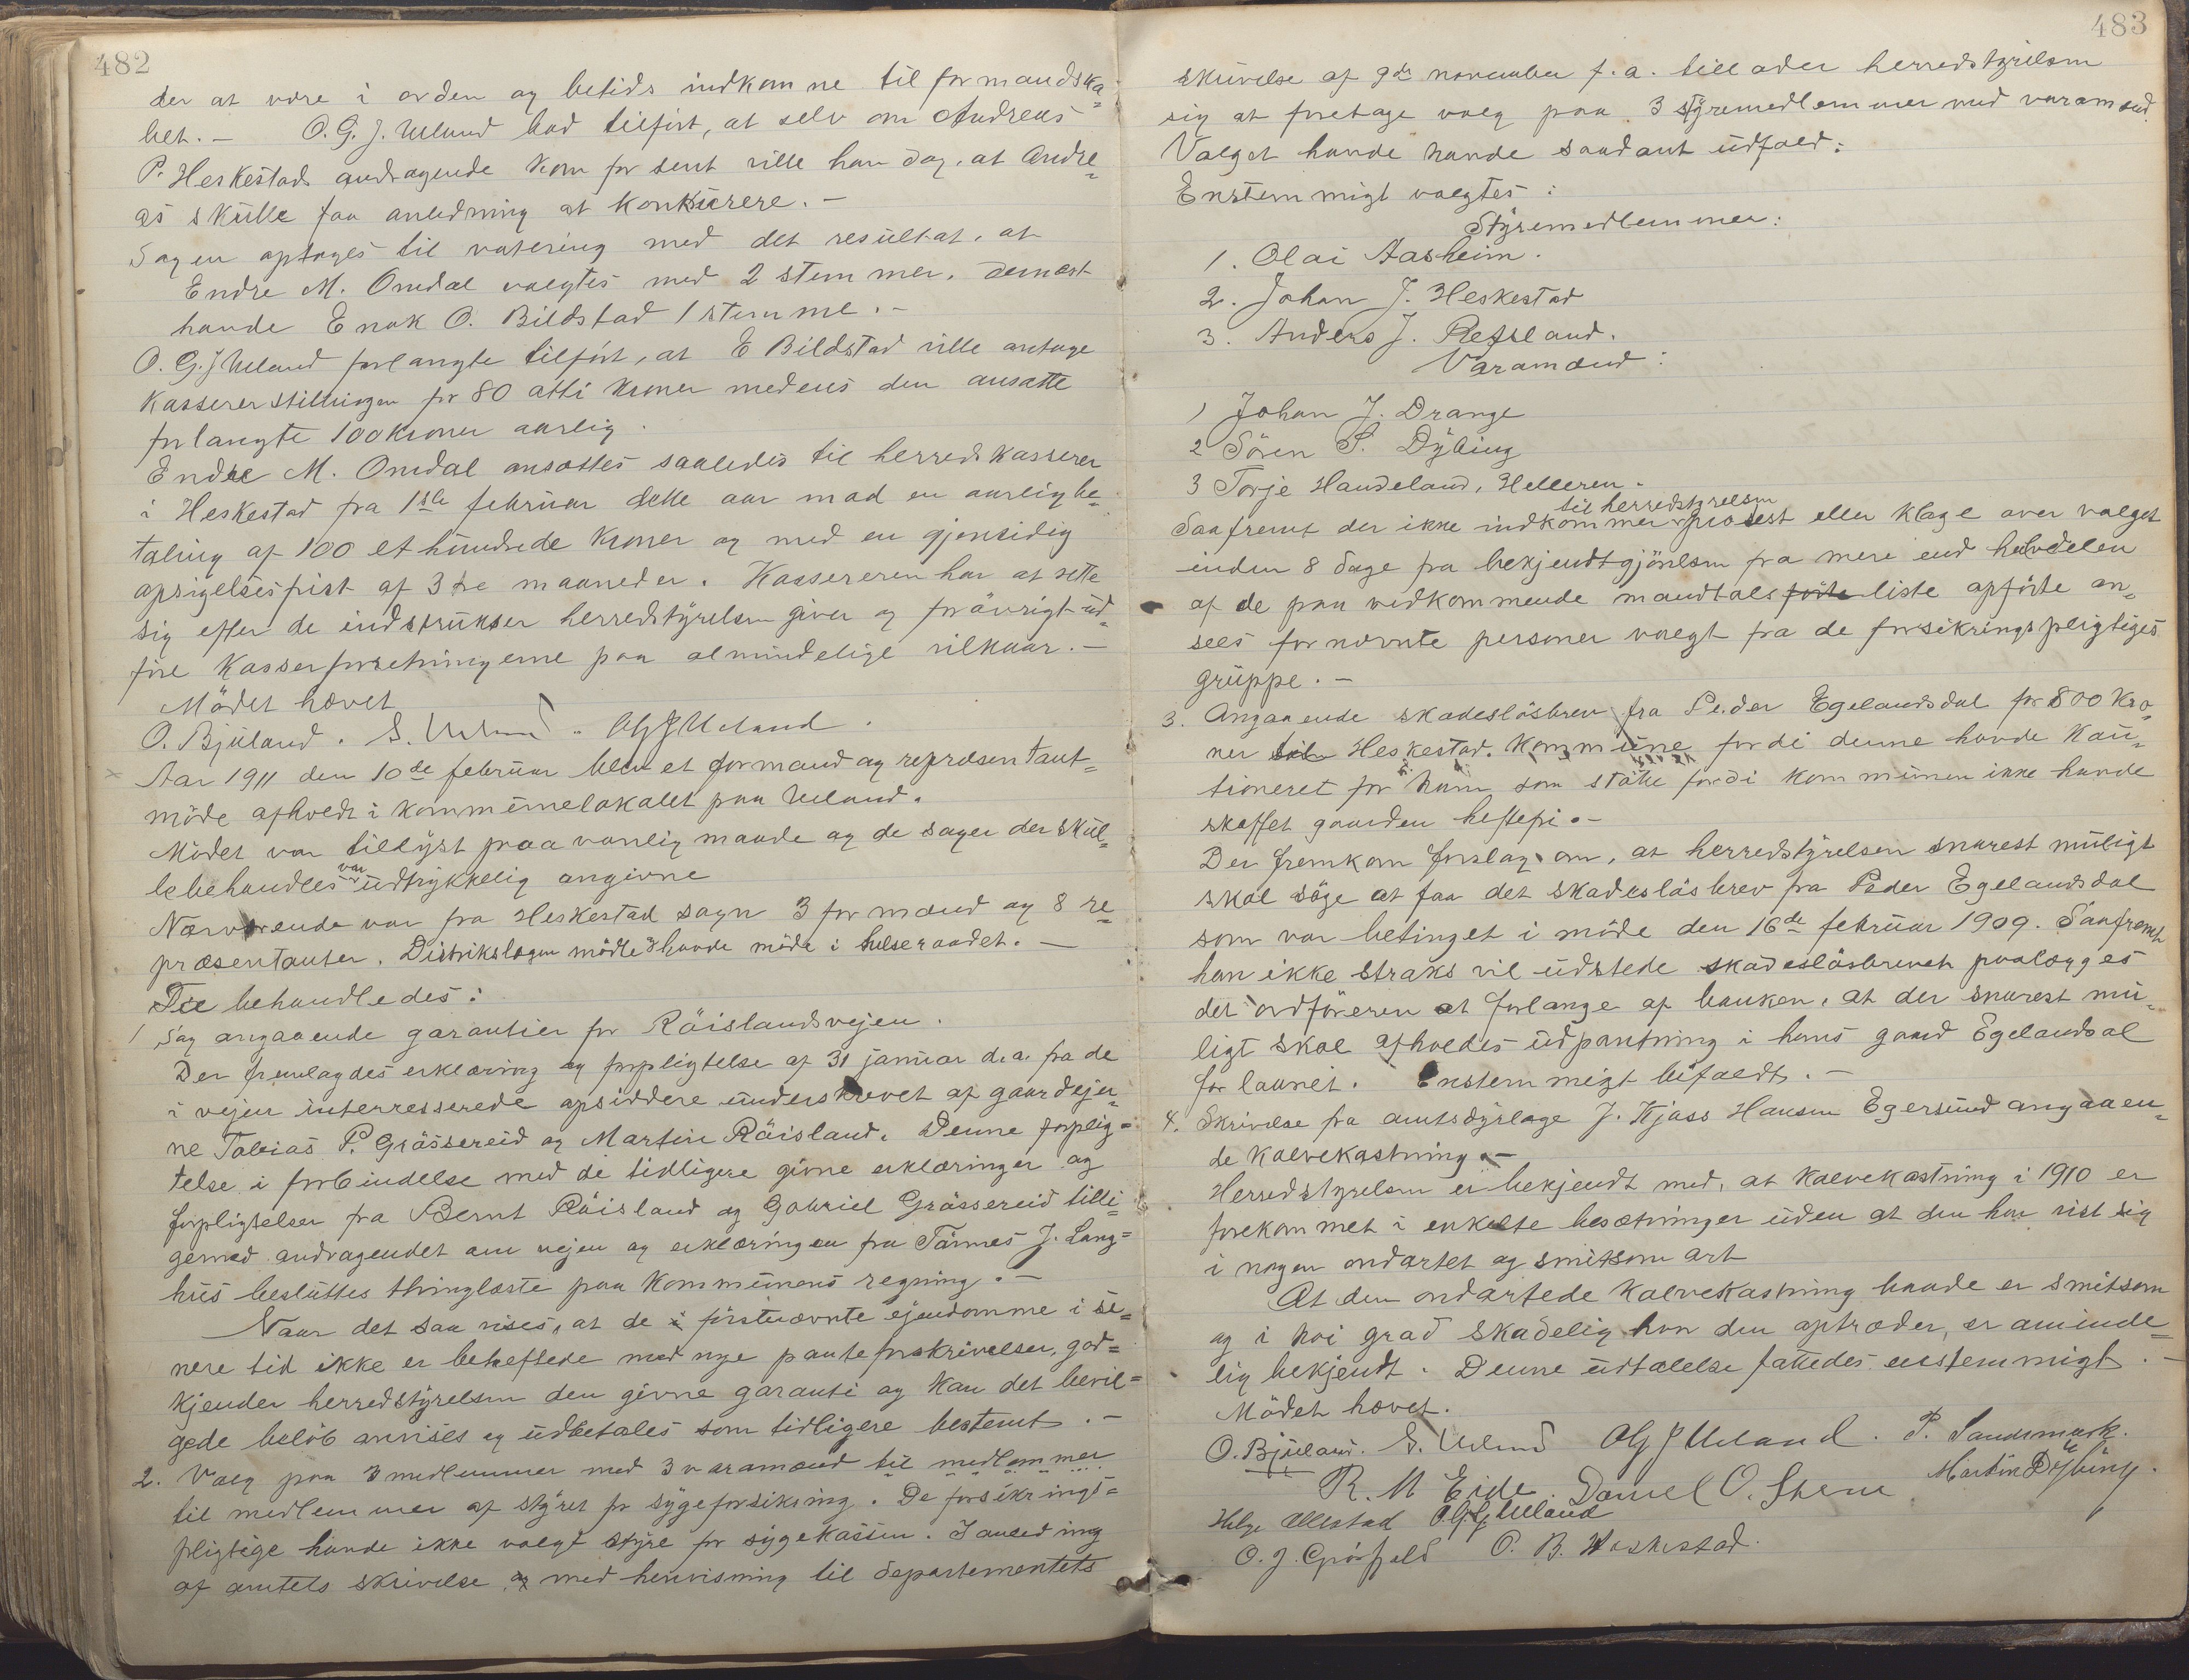 482
der at være i orden og betids indkomne til formandska=
bet. — O. G. J. Ueland bad tilført, at selv om Andreas
P. Heskestads andragende kom for sent ville han dog, at Andre=
as skulle faa anledning at konkurere. —
Sagen optoges til votering med det resultat, at
Endre M. Omdal valgtes med 2 stemmer, dernest
havde Enok O. Bildstad 1 stemme. —
O. G. J Ueland forlangte tilført, at E Bildstad ville antage
Kassererstillingen for 80 atti kroner medens den ansatte
forlangte 100 kroner aarlig.
Endre M. Omdal ansattes saaledes til herredskasserer
i Heskestad fra 1ste februar dette aar mod en aarlig be=
taling af 100 et hundrede kroner og med en gjensidig
opsigelsesfrist af 3 tre maaneder. Kassereren har at rette
sig efter de indstrukser herredstyrelsen giver og forøvrigt ud=
føre Kasserforretningerne paa almindelige vilkaar. —
Mødet hævet
O. Bjuland. S. Ueland. OGJUeland.
Aar 1911 den 10de februar blev et formand og repræsentant=
møde afholdt i kommunelokalet paa Ueland.
Mødet var tillyst paa vanlig maade og de sager der skul=
var
lebehandles udtrykkelig angivne
Nærværende var fra Heskestad sogn 3 formænd og 8 re=
præsentanter. Distrikslægen mødte & havde møde i helseraadet. —
Der behandledes:
1 Sag angaaende garantier for Røislandsvejen.
Der fremlagdes erklæring og forpligtelse af 31 januar d.a. fra de
i vejen interresserede opsiddere underskrevet af gaardejer=
ne Tobias P. Grøssereid og Martin Røisland. Denne forplig=
telse i forbindelse med de tidligere givne erklæringer og
forpligtelser fra Bernt Røisland og Gabriel Grøssereid tilli=
gemed andragendet om vejen og erklæringen fra Tønnes J. Lang=
hus besluttes thinglæste paa Kommunens regning. —
Naar det saa vises, at de i førstnævnte ejendomme i se=
nere tid ikke er beheftede med nye panteforskrivelser, god=
kjender herredstyrelsen den givne garanti og kan det bevil=
gede beløb anvises og udbetales som tidligere bestemt. —
2. Valg paa 3 medlemmer med 3 varamænd til medlemmer
til medlemmer af styret for sygeforsikring. De forsikrings=
pligtige havde ikke valgt styre for sygekassen. I anledning
af amtets skrivelse og med henvisning til departementets
483
skrivelse af 9de november f.a. tillader herredstyrelsen
sig at foretage valg paa 3 styremedlemmer med varamænd.
Valget havde havde saadant udfald:
Enstemmigt valgtes:
Styremedlemmer:
1. Olai Aasheim.
2. Johan J. Heskestad
3. Anders J. Refsland.
Varamænd:
1 Johan J. Drange
2 Søren S. Dybing
3 Torje Haudeland, Helleren.
til herredstyrelsen
Saafremt der ikke indkommer protest eller klage over valget
inden 8 dage fra bekjendtgjørelsen fra mere end halvdelen
af de paa vedkommende mandtalsførte liste opførte an=
sees fornævnte personer valgt fra de forsikringspligtiges
gruppe. —
3. Angaaende skadesløsbrev fra Peder Egelandsdal for 800 kro=
ner til Heskestad Kommune fordi denne havde kau=
tioneret for ham som støtte fordi kommunen ikke havde
skaffet gaarden heftefri. —
Der fremkom forslag om, at herredstyrelsen snarest muligt
skal søge at faa det skadesløsbrev fra Peder Egelandsdal
som var betinget i møde den 16de februar 1909. Saafremt
han ikke straks vil udstede skadesløsbrevet paalægges
det ordføreren at forlange af banken, at der snarest mu=
ligt skal afholdes udpantning i hans gaard Egelandsdal
for laanet. Enstemmigt bifaldt. —
4. Skrivelse fra amtsdyrlæge J. Kjoss Hansen Egersund angaaen=
de Kalvekastning. —
Herredstyrelsen er bekjendt med, at kalvekastning i 1910 er
forekommet i enkelte besætninger uden at den har vist sig
i nogen ondartet og smitsom art
At den ondartede kalvekastning baade er smitsom
og i høi grad skadelig hvor den optræder, er aminde=
lig bekjendt. Denne udtalelse fattedes enstemmigt. —
Mødet hævet.
O. Bjuland. S. Ueland OGJUeland. P. Sandsmark.
R. M Eide. Daniel O. Skene Martin Dybing.
Helge Ollestad O.G.G Ueland
O. J. Grøsfjeld O. B. Heskestad.